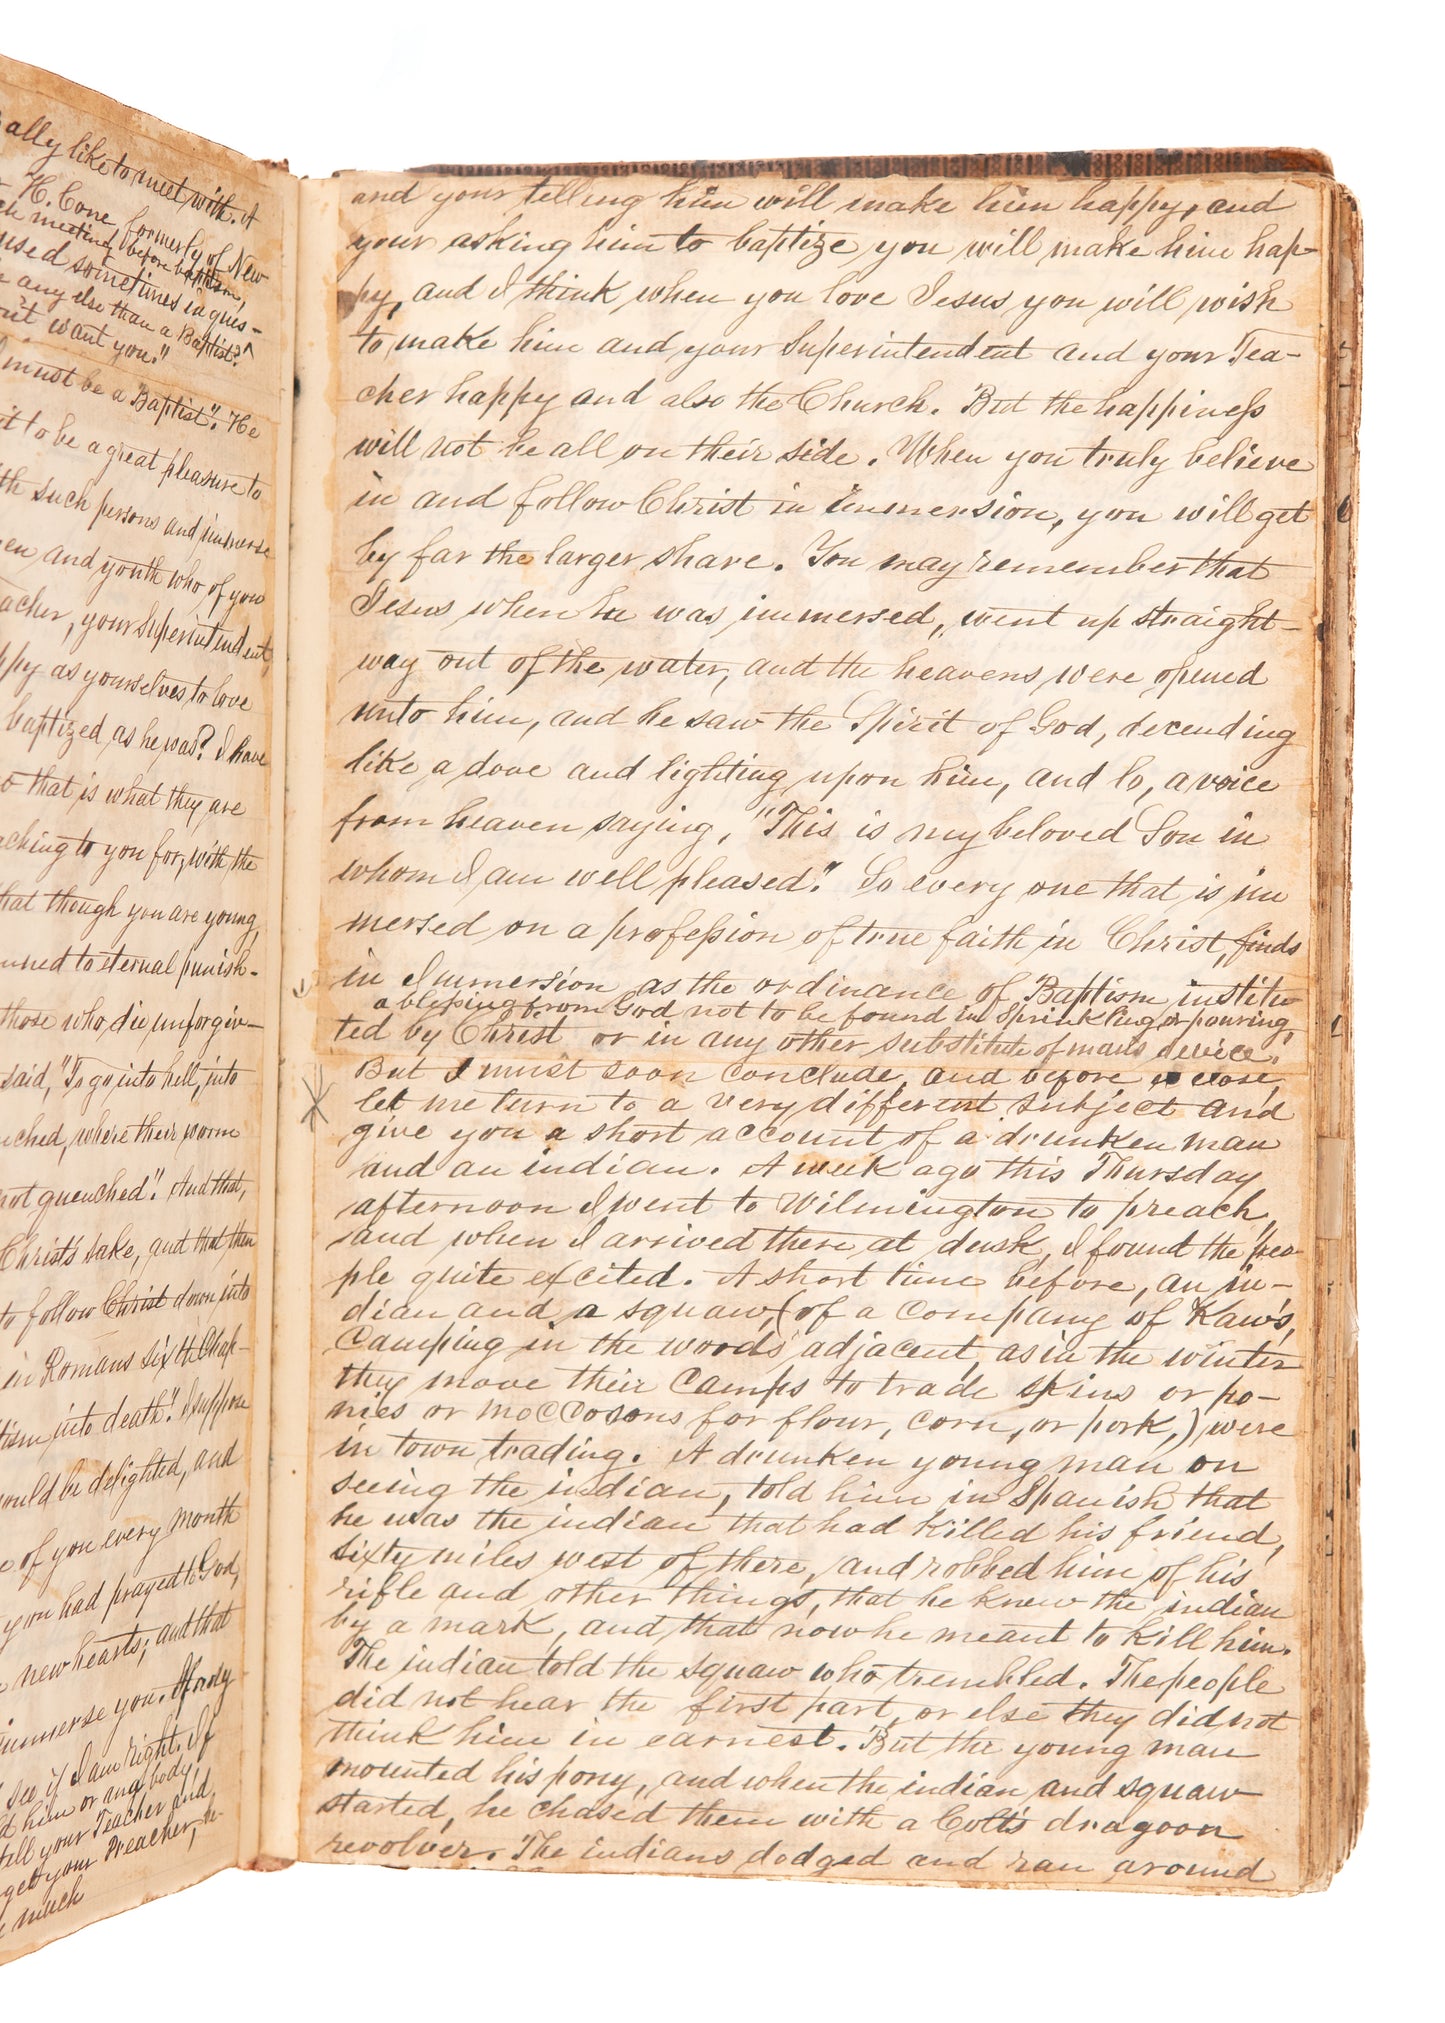 ally like to meet with. A
H. Cone, formerly of New
meeting before baptism,
used sometimes in ques-
any else than a Baptist?
want you."
must be a Baptist". He
it to be a great pleasure to
such persons and immerse
and youth who of you
acher, your Superintendent,
ppy as yourselves to love
baptized as he was? I have
that is what they are
aching to you for, with the
hat though you are young,
to eternal punish-
those who die unforgiv-
said, "To go into hell, into
ched, where their worm
not quenched". And that,
Christ's sake, and that then
to follow Christ down into
in Romans sixth Chap-
tism into death". I suppose
would be delighted, and
of you every month
you had prayed to God,
new hearts; and that
immerse you.
see if I am right. If
him or any body
tell your Teacher and
get your Preacher,
much
and your telling him will make him happy, and
your asking him to baptize you will make him hap-
py, and I think when you love Jesus you will wish
to make him and your Superintendent and your Tea-
cher happy and also the Church. But the happiness
will not be all on their side. When you truly believe
in and follow Christ in immersion, you will get
by far the larger share. You may remember that
Jesus when he was immersed, "went up straight-
way out of the water, and the heavens were opened
unto him, and he saw the Spirit of God, decending
like a dove and lighting upon him, and lo, a voice
from heaven saying, "This is my beloved Son in
whom I am well pleased". So every one that is im
mersed on a profession of true faith in Christ, finds
in Immersion as the ordinance of Baptism institu-
a blessing from God not to be found in Sprinkling or pouring,
ted by Christ or in any other substitute of man's device.
But I must soon conclude, and before close,
let me turn to a very different subject and
give you a short account of a drunken man
and an indian. A week ago this Thursday
afternoon I went to Wilmington to preach,
and when I arrived there at dusk, I found the peo-
ple quite excited. A short time before, an in-
dian and a squaw, (of a company of Kaw's,
camping in the woods adjacent, as in the winter
they move their camps to trade skins or po-
nies or moccosons for flour, corn, or pork,) were
in town trading. A drunken young man on
seeing the indian, told him in Spanish that
he was the indian that had killed his friend,
sixty miles west of there, and robbed him of his
rifle and other things, that he knew the indian
by a mark, and that now he meant to kill him.
The indian told the squaw who trembled. The people
did not hear the first part, or else they did not
think him in earnest. But the young man
mounted his pony, and when the indian and squaw
started, he chased them with a Colt's dragoon
revolver. The indians dodged and ran around